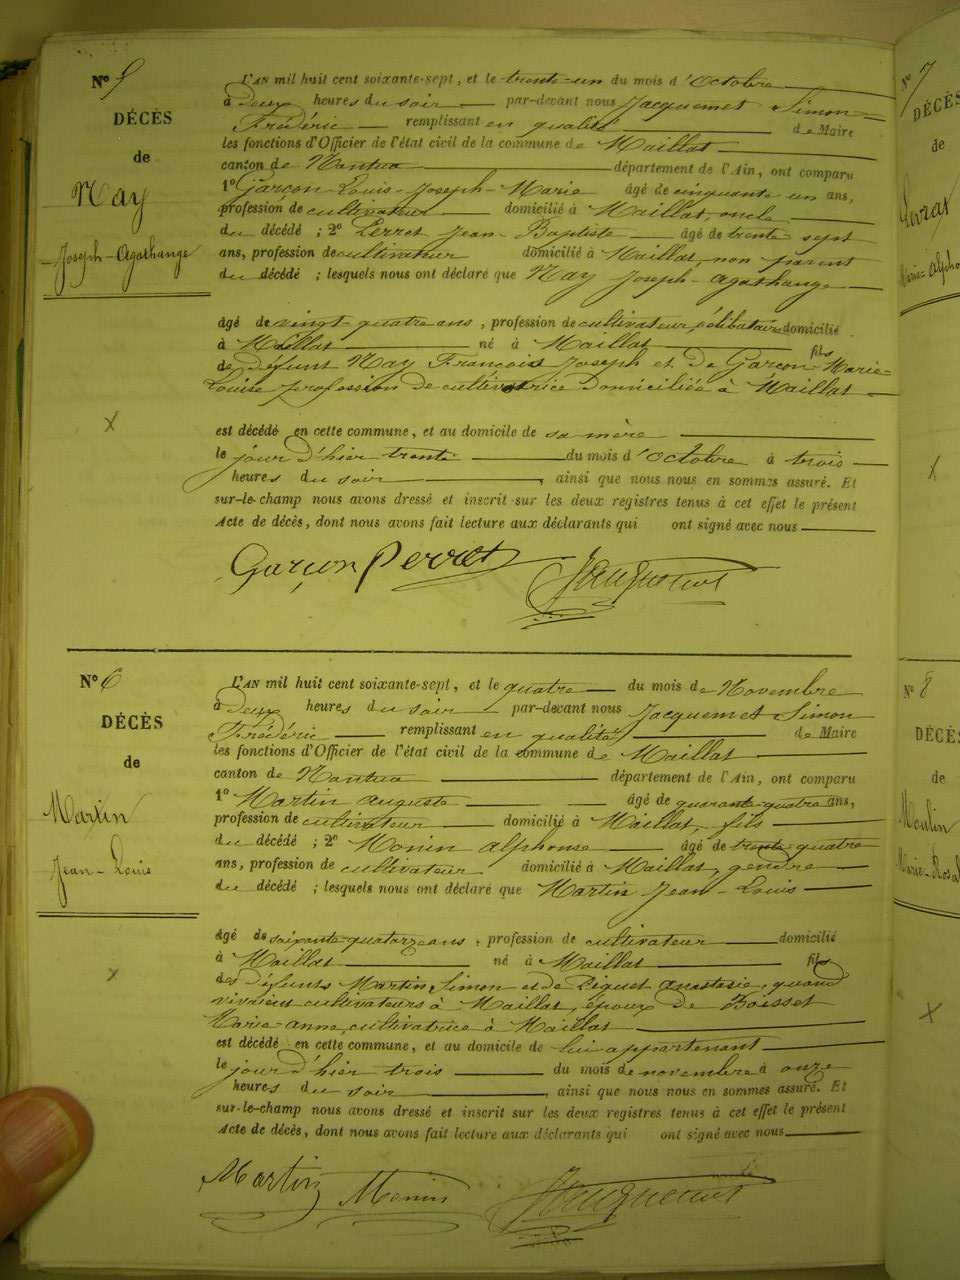 N° 5
DÉCÈS
de
Nay
Joseph-Agathange
L'AN mil huit cent soixante-sept, et le trente-un du mois d'Octobre
à Deux heures du soir par-devant nous Jacquemet Simon
Frédéric remplissant en qualité de Maire
les fonctions d'Officier de l'état civil de la commune de Maillat
canton de Nantua département de l'Ain, ont comparu
1° Garçon Louis-Joseph-Marie âgé de cinquante un ans,
profession de cultivateur domicilié à Maillat, oncle
du décédé ; 2° Perret Jean Baptiste âgé de trente sept
ans, profession de cultivateur domicilié à Maillat, non parent
du décédé ; lesquels nous ont déclaré que Nay Joseph-Agathange
âgé de vingt-quatre ans, profession de cultivateur célibataire domicilié
à Maillat né à Maillat fils
de défunt Nay François Joseph et De Garçon Marie-
Louise profession de cultivatrice domiciliée à Maillat
est décédé en cette commune, et au domicile de sa mère
le jour d'hier trente du mois d'Octobre à trois
heures du soir, ainsi que nous nous en sommes assuré. Et
sur-le-champ nous avons dressé et inscrit sur les deux registres tenus à cet effet le présent
Acte de décès, dont nous avons fait lecture aux déclarants qui ont signé avec nous
Garçon Perret Jacquemet
N° 6
DÉCÈS
de
Martin
Jean-Louis
L'AN mil huit cent soixante-sept, et le quatre du mois de Novembre
à Deux heures du soir par-devant nous Jacquemet Simon
Frédéric remplissant en qualité de Maire
les fonctions d'Officier de l'état civil de la commune de Maillat
canton de Nantua département de l'Ain, ont comparu
1° Martin auguste âgé de quarante-quatre ans,
profession de cultivateur domicilié à Maillat, fils
du décédé ; 2° Monin alphonse âgé de trente quatre
ans, profession de cultivateur domicilié à Maillat, gendre
du décédé ; lesquels nous ont déclaré que Martin Jean-Louis
âgé de soixante-quatorze ans, profession de cultivateur domicilié
à Maillat né à Maillat fils
des défunts Martin Simon et de Piquet anastasie, quand
vivaient cultivateurs à Maillat, époux De Boisset
Marie-anne, cultivatrice à Maillat
est décédé en cette commune, et au domicile de lui appartenant
le jour d'hier trois du mois de novembre à onze
heures du soir, ainsi que nous nous en sommes assuré. Et
sur-le-champ nous avons dressé et inscrit sur les deux registres tenus à cet effet le présent
Acte de décès, dont nous avons fait lecture aux déclarants qui ont signé avec nous
Martin Monin Jacquemet
N° 7
DÉCÈS
de
N° 8
DÉCÈS
de
Moulin